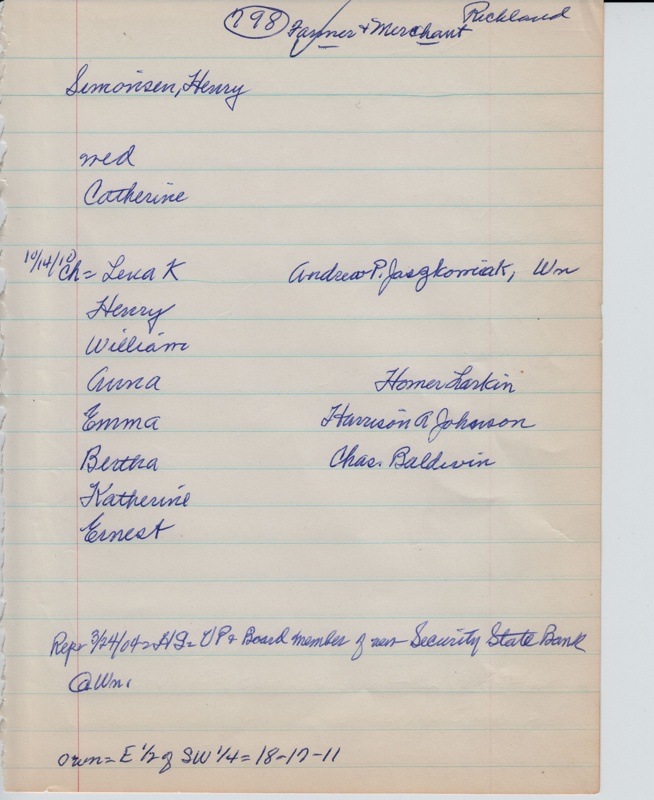 798 Farmer & Merchant Richland
Simonsen, Henry
med
Catherine
10/14/10 Ch= Lena K Andrew P. Jaszkowiak, Wn
Henry
William
Anna Homer Larkin
Emma Harrison A Johnson
Bertha Chas. Baldwin
Katherine
Ernest
Repr 3/24/04= HS= VP & Board member of new Security State Bank
@ Wn.
own= E 1/2 of SW 1/4= 18-17-11